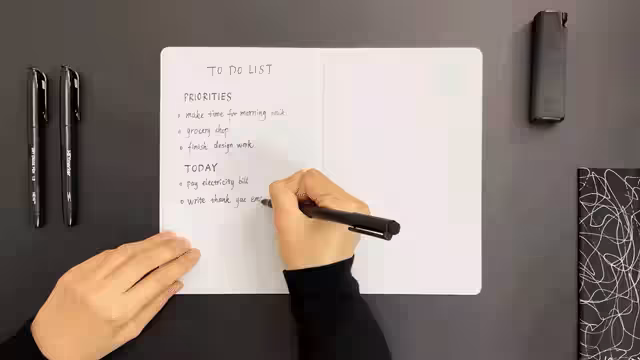 TO DO LIST
PRIORITIES
make time for morning
grocery shop
finish design work
TODAY
pay electricity bill
write thank you